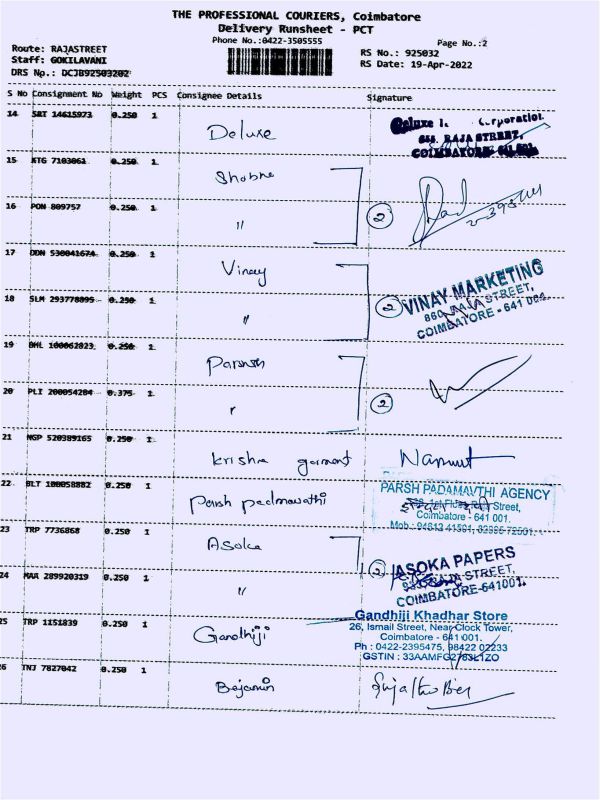 THE PROFESSIONAL COURIERS, Coimbatore
Delivery Runsheet - PCT
Phone No.:0422-3505555
Page No.:2
Route: RAJASTREET
Staff: GOKILAVANI
DRS No.: DCJB92503202
RS No.: 925032
RS Date: 19-Apr-2022
S No Consignment No Weight PCS Consignee Details Signature
14 SRT 14615973 0.250 1 Deluxe
Deluxe
RAJA STREET,
COIMBATORE
15 KTG 7103061 0.250 1 Shobha
16 PON 809757 0.250 1 〃 2
17 DDN 530041674 0.250 1 Vinay
18 SLM 293778895 0.250 1 〃 2
VINAY MARKETING
860, RAJA STREET,
COIMBATORE - 641 001.
19 BHL 100062823 0.250 1
20 PLI 200054284 0.375 1 〃 2
21 NGP 520389165 0.250 1 Krishna garment
22 BLT 100058882 0.250 1 Parsh padmavathi
PARSH PADAMAVTHI AGENCY
Street,
Coimbatore - 641 001.
23 TRP 7736868 0.250 1 Asoka
24 MAA 289920319 0.250 1 〃 2
ASOKA PAPERS
RAJA STREET,
COIMBATORE-641001.
25 TRP 1151839 0.250 1 Gandhiji
Gandhiji Khadhar Store
26, Ismail Street, Near Clock Tower,
Coimbatore - 641 001.
Ph : 0422-2395475, 98422 02233
GSTIN :
26 TNJ 7827042 0.250 1 Bejamin